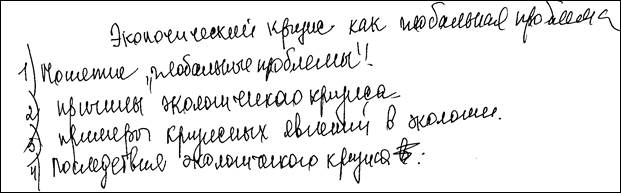 Экологический кризис как глобальная проблема
1) Понятие „глобальные проблемы"!
2) причины экологического кризиса
3) примеры кризисных явлений в экологии.
4) последствия экологического кризиса :